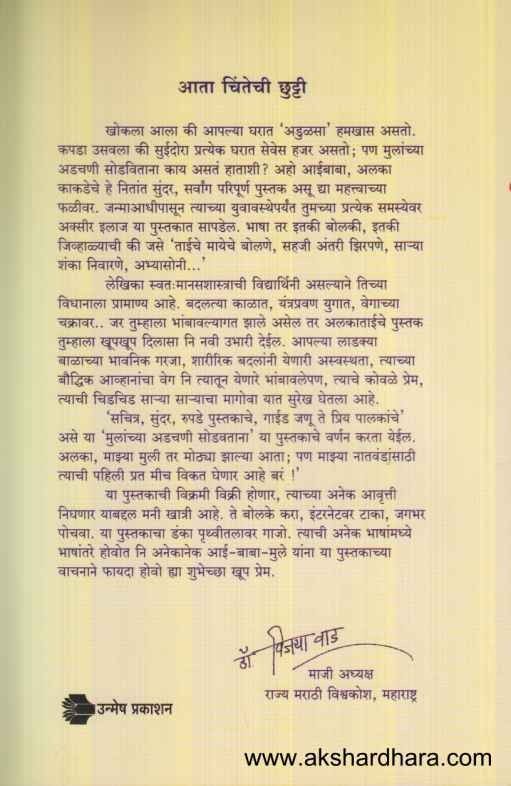 आता चिंतेची छुट्टी
खोकला आला की आपल्या घरात 'अडुळसा' हमखास असतो.
कपडा उसवला की सुईदोरा प्रत्येक घरात सेवेस हजर असतो; पण मुलांच्या
अडचणी सोडविताना काय असतं हाताशी? अहो आईबाबा, अलका
काकडेचे हे नितांत सुंदर, सर्वांग परिपूर्ण पुस्तक असू द्या महत्त्वाच्या
फळीवर. जन्माआधीपासून त्याच्या युवावस्थेपर्यंत तुमच्या प्रत्येक समस्येवर
अक्सीर इलाज या पुस्तकात सापडेल. भाषा तर इतकी बोलकी, इतकी
जिव्हाळ्याची की जसे 'ताईचे मायेचे बोलणे, सहजी अंतरी झिरपणे, साऱ्या
शंका निवारणे, अभ्यासोनी...'
लेखिका स्वतःमानसशास्त्राची विद्यार्थिनी असल्याने तिच्या
विधानाला प्रामाण्य आहे. बदलत्या काळात, यंत्रप्रवण युगात, वेगाच्या
चक्रावर.. जर तुम्हाला भांबावल्यागत झाले असेल तर अलकाताईचे पुस्तक
तुम्हाला खूपखूप दिलासा नि नवी उभारी देईल. आपल्या लाडक्या
बाळाच्या भावनिक गरजा, शारीरिक बदलांनी येणारी अस्वस्थता, त्याच्या
बौद्धिक आव्हानांचा वेग नि त्यातून येणारे भांबावलेपण, त्याचे कोवळे प्रेम,
त्याची चिडचिड साऱ्या साऱ्याचा मागोवा यात सुरेख घेतला आहे.
'सचित्र, सुंदर, रुपडे पुस्तकाचे, गाईड जणू ते प्रिय पालकांचे'
असे या 'मुलांच्या अडचणी सोडवताना' या पुस्तकाचे वर्णन करता येईल.
अलका, माझ्या मुली तर मोठ्या झाल्या आता; पण माझ्या नातवंडांसाठी
त्याची पहिली प्रत मीच विकत घेणार आहे बरं !'
या पुस्तकाची विक्रमी विक्री होणार, त्याच्या अनेक आवृत्ती
निघणार याबद्दल मनी खात्री आहे. ते बोलके करा, इंटरनेटवर टाका, जगभर
पोचवा. या पुस्तकाचा डंका पृथ्वीतलावर गाजो. त्याची अनेक भाषांमध्ये
भाषांतरे होवोत नि अनेकानेक आई-बाबा-मुले यांना या पुस्तकाच्या
वाचनाने फायदा होवो ह्या शुभेच्छा खूप प्रेम.
डॉ. विजया वाड
माजी अध्यक्ष
राज्य मराठी विश्वकोश, महाराष्ट्र
उन्मेष प्रकाशन
www.akshardhara.com